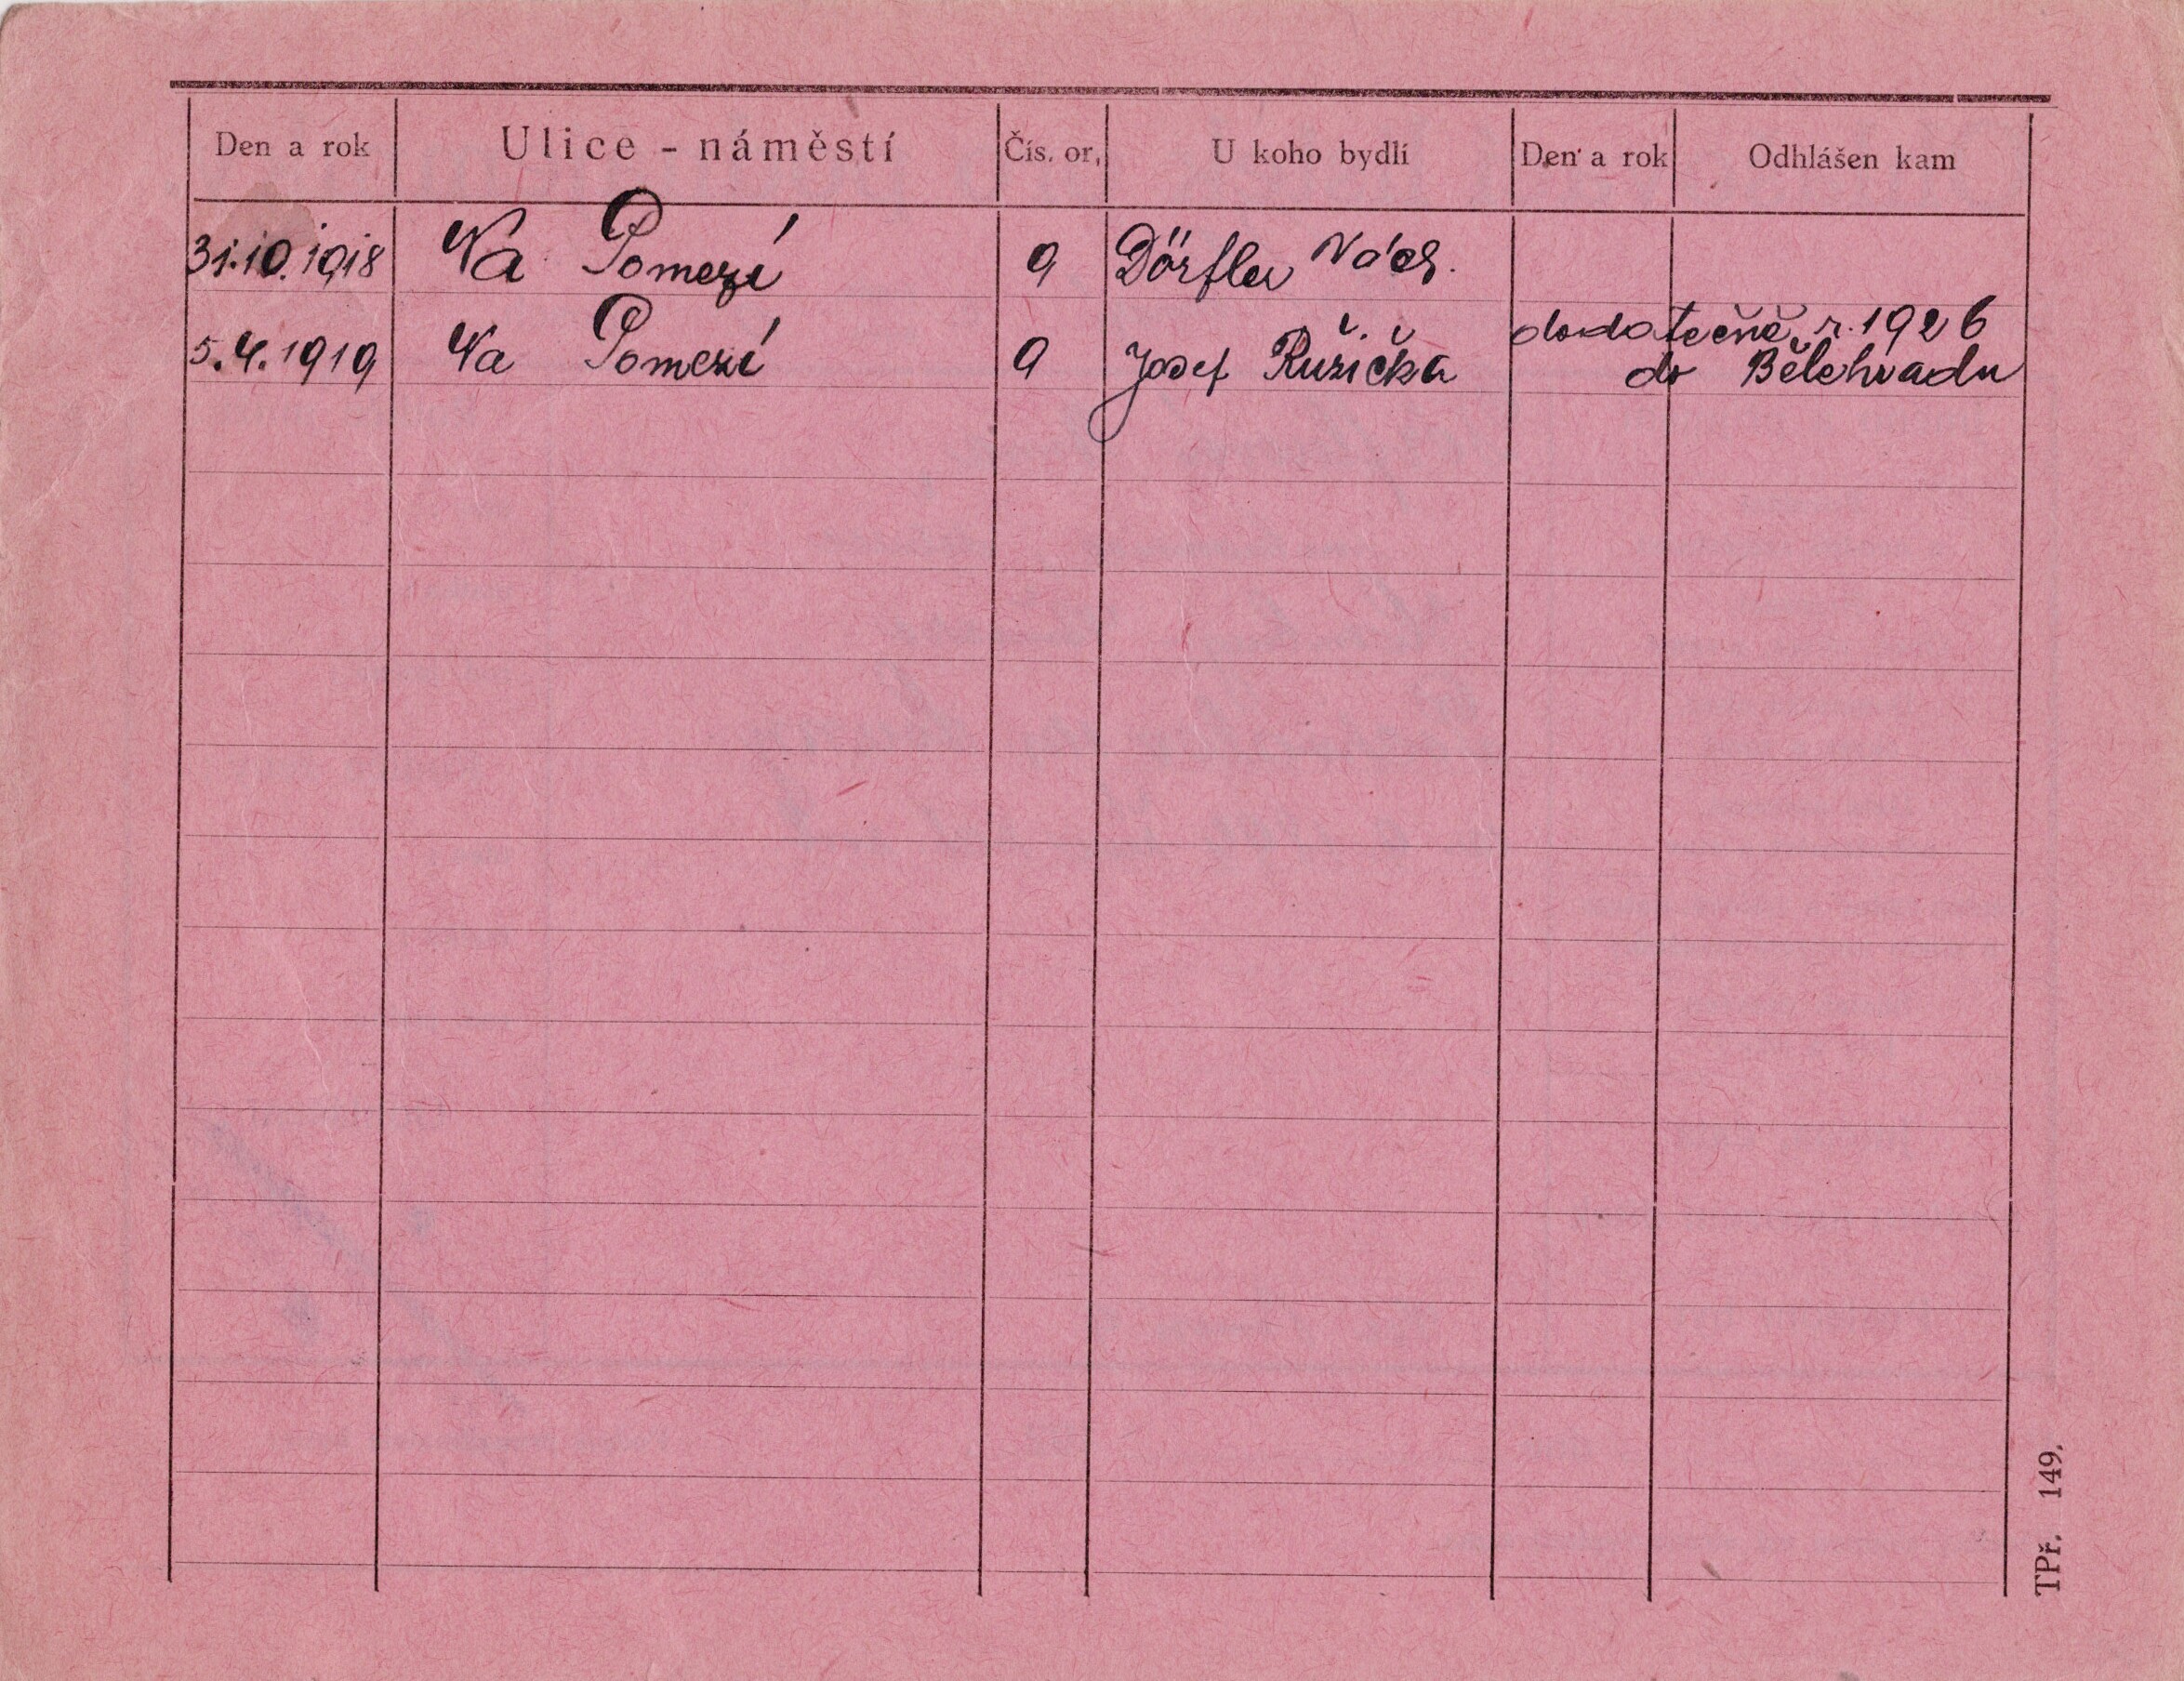 Den a rok Ulice - náměstí Čís. or. U koho bydlí Den a rok Odhlášen kam
31.10.1918 Na Pomezí 9 Dörfler Václ.
dodatečně r. 1926
5.4.1919 Na Pomezí 9 Josef Ružička do Bělehradu
TPř. 149.